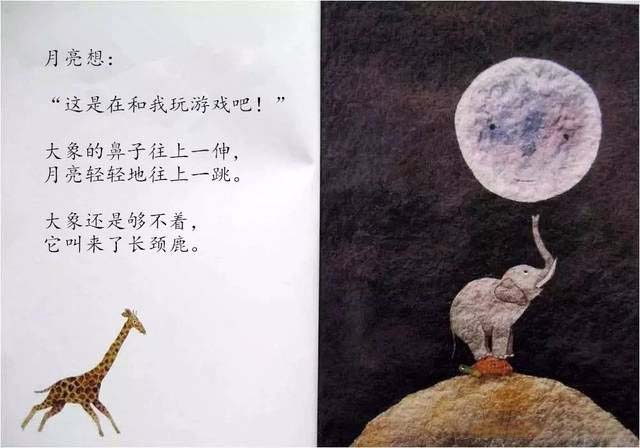 月亮想：
“这是在和我玩游戏吧！”
大象的鼻子往上一伸，
月亮轻轻地往上一跳。
大象还是够不着，
它叫来了长颈鹿。